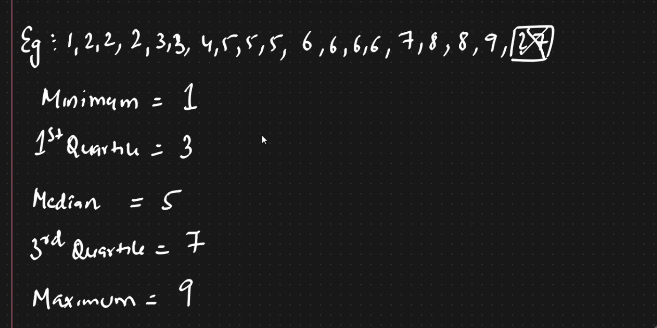 Eg : 1, 2, 2, 2, 3, 3, 4, 5, 5, 5, 6, 6, 6, 6, 7, 8, 8, 9, 27
Minimum = 1
1st Quartile = 3
Median = 5
3rd Quartile = 7
Maximum = 9